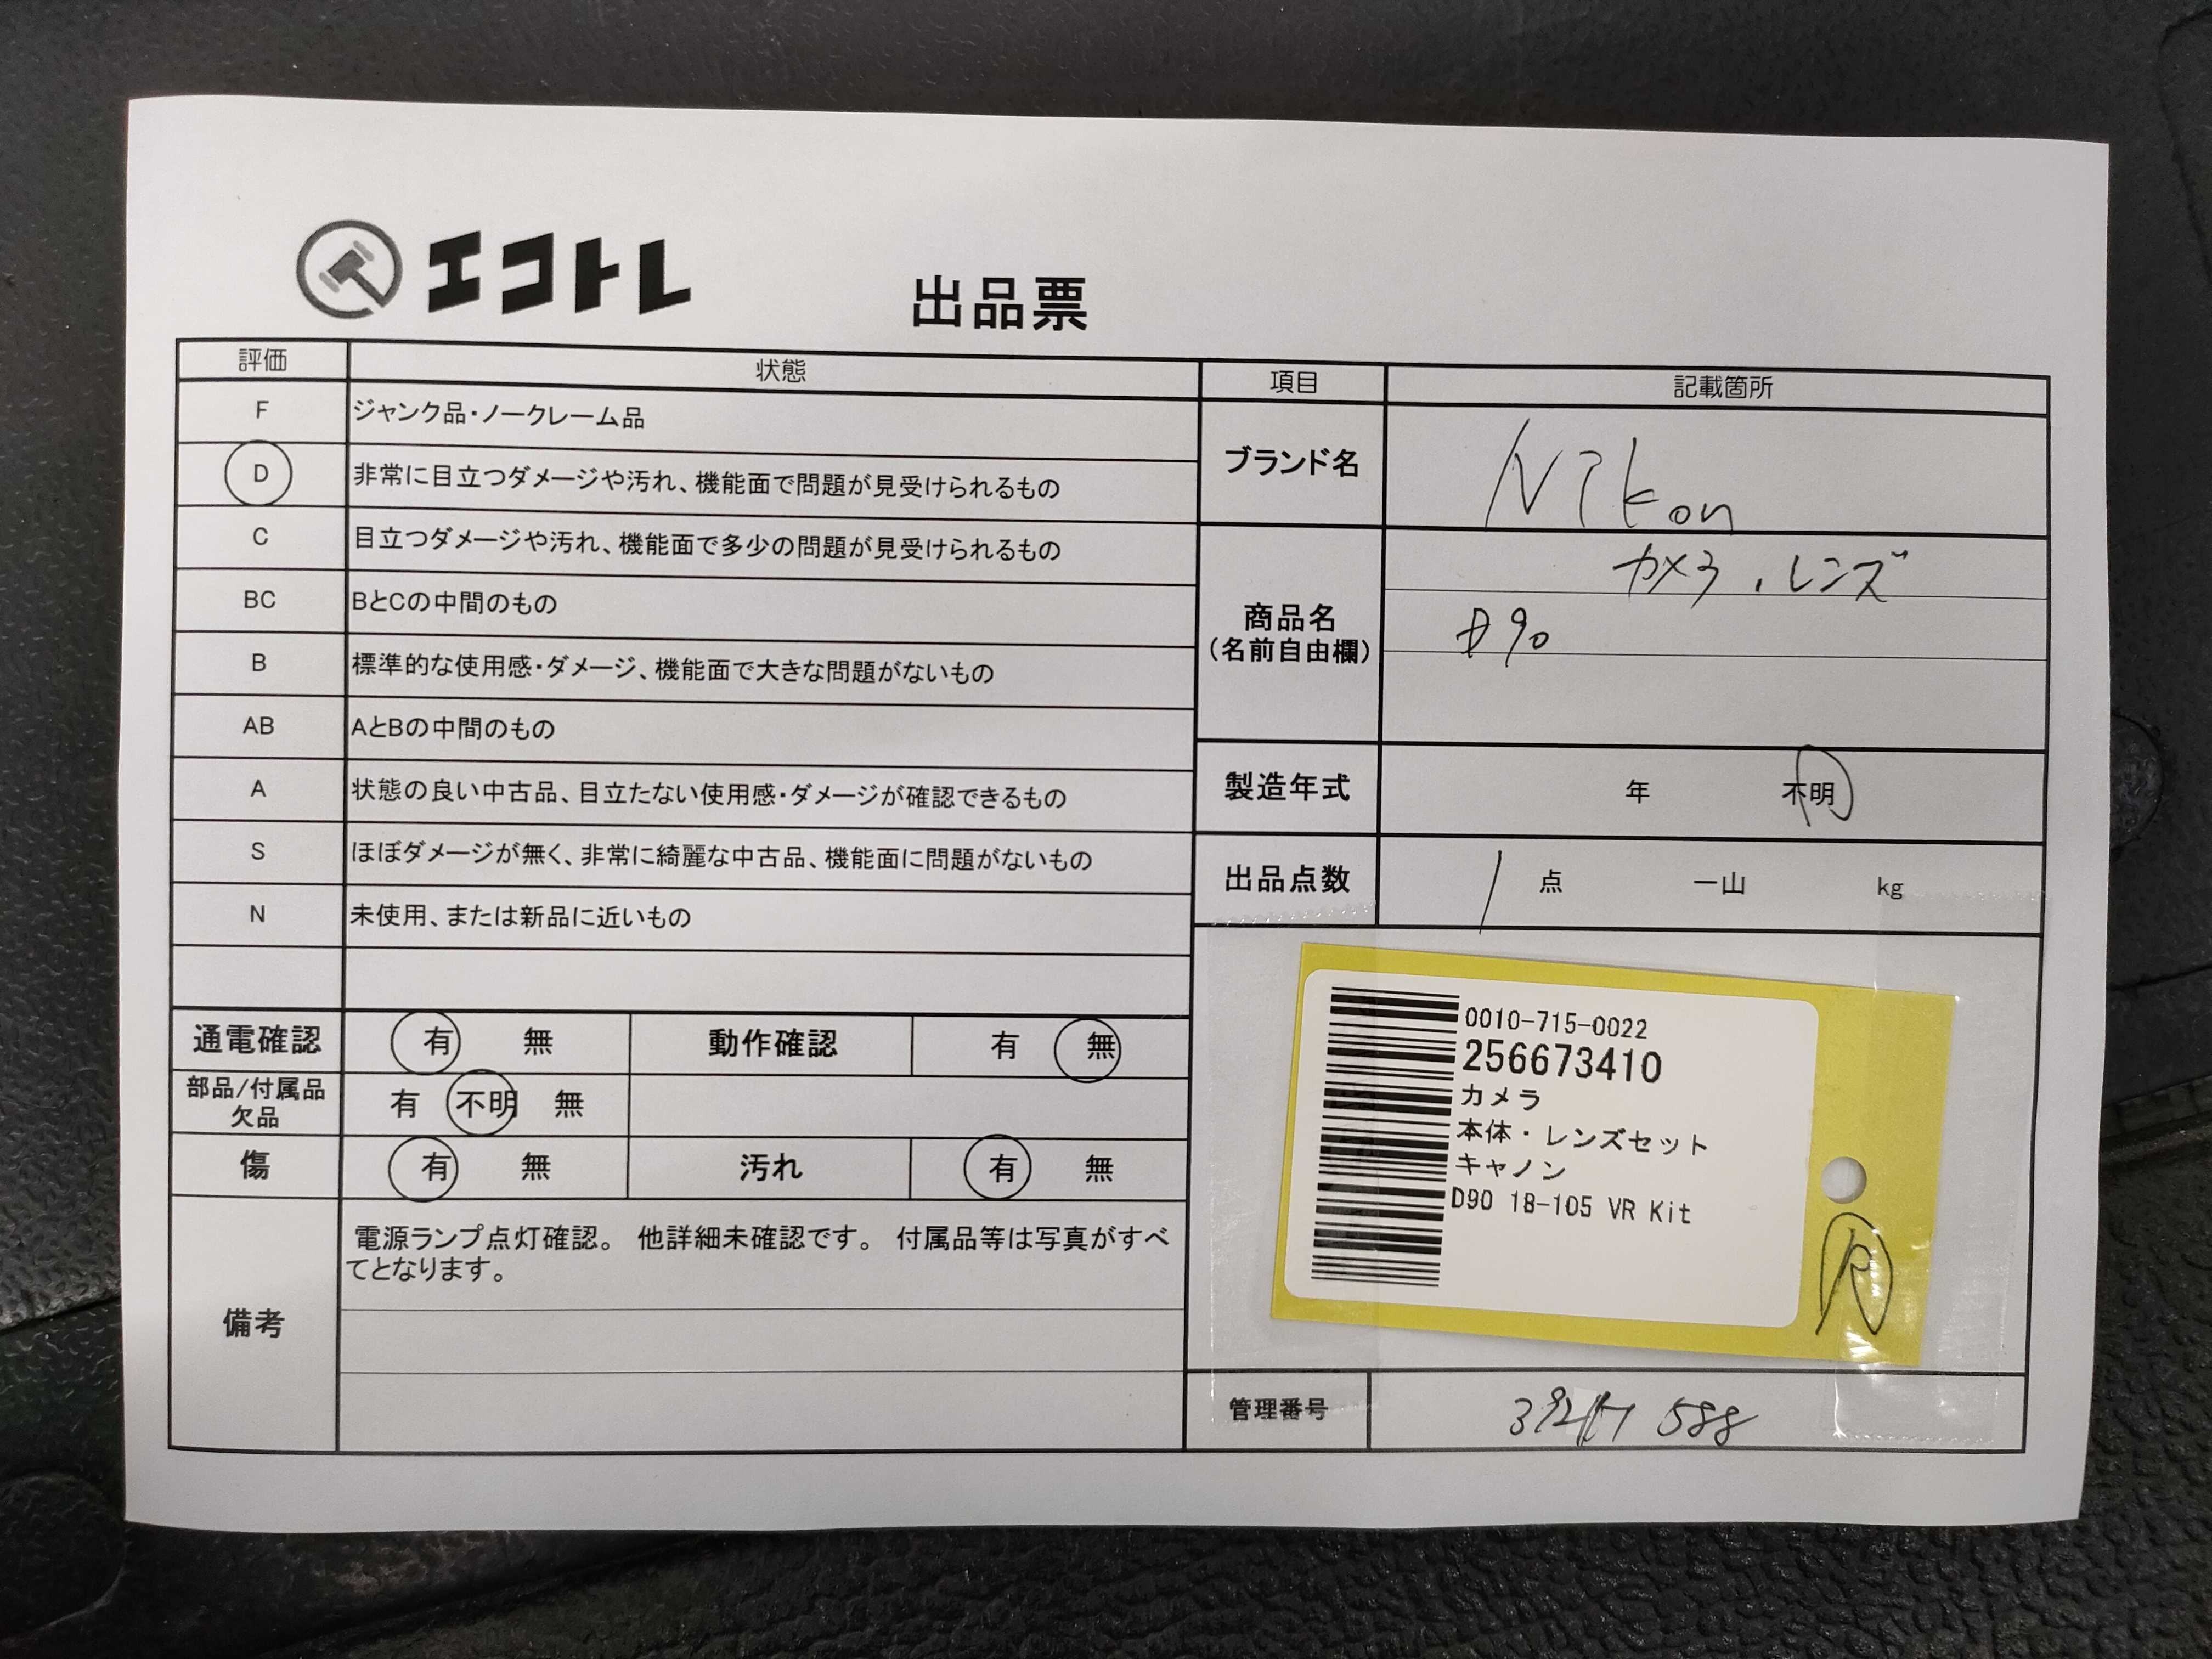 エコトレ
出品票
評価 状態
F ジャンク品・ノークレーム品
D 非常に目立つダメージや汚れ、機能面で問題が見受けられるもの
C 目立つダメージや汚れ、機能面で多少の問題が見受けられるもの
BC BとCの中間のもの
B 標準的な使用感・ダメージ、機能面で大きな問題がないもの
AB AとBの中間のもの
A 状態の良い中古品、目立たない使用感・ダメージが確認できるもの
S ほぼダメージが無く、非常に綺麗な中古品、機能面に問題がないもの
N 未使用、または新品に近いもの
通電確認 有 無 動作確認 有 無
部品/付属品
欠品
有 不明 無
傷 有 無 汚れ 有 無
備考
電源ランプ点灯確認。 他詳細未確認です。 付属品等は写真がすべ
てとなります。
項目 記載箇所
ブランド名 Nikon
商品名
(名前自由欄)
カメラ、レンズ
D90
製造年式 年 不明
出品点数 1 点 一山 kg
0010-715-0022
256673410
カメラ
本体・レンズセット
キャノン
D90 18-105 VR Kit
R
管理番号 588